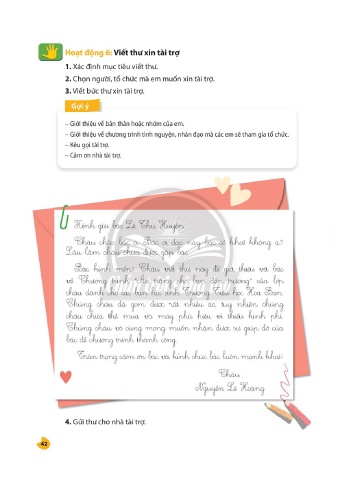 Hoạt động 6: Viết thư xin tài trợ
1. Xác định mục tiêu viết thư.
2. Chọn người, tổ chức mà em muốn xin tài trợ.
3. Viết bức thư xin tài trợ.
Gợi ý
– Giới thiệu về bản thân hoặc nhóm của em.
– Giới thiệu về chương trình tình nguyện, nhân đạo mà các em sẽ tham gia tổ chức.
– Kêu gọi tài trợ.
– Cảm ơn nhà tài trợ.
Kính gửi bác Lê Thu Huyền
Cháu chào bác ạ. Bác ơi dạo này bác có khoẻ không ạ?
Lâu lắm cháu chưa được gặp bác.
Bác kính mến! Cháu viết thư này để giới thiệu với bác
về Chương trình "Áo trắng cho bạn đến trường" của lớp
cháu dành cho các bạn học sinh Trường Tiểu học Hoa Ban.
Chúng cháu đã gom được rất nhiều áo, tuy nhiên chúng
cháu chưa thể mua và may phù hiệu vì thiếu kinh phí.
Chúng cháu vô cùng mong muốn nhận được sự giúp đỡ của
bác để chương trình thành công.
Trân trọng cảm ơn bác và kính chúc bác luôn mạnh khoẻ!
Cháu
Nguyễn Lê Hoàng
4. Gửi thư cho nhà tài trợ.
42